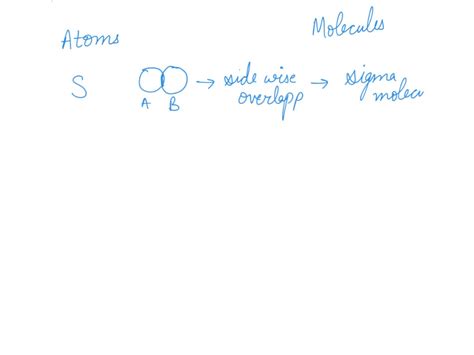 Atoms
Molecules
S
A B
side wise
overlapp
sigma
molecu